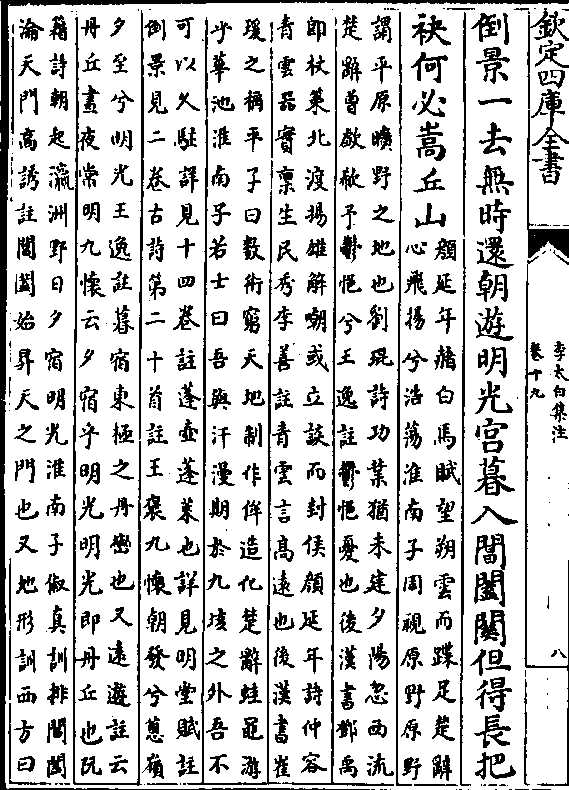 欽定四庫全書
李太白集注
卷十九
八
倒景一去無時還朝遊明光宮暮入閶闔關但得長把
袂何必嵩丘山
顏延年赭白馬賦望朔雲而蹀足楚辭
心飛揚兮浩蕩淮南子周視原野原野
謂平原曠野之地也劉琨詩功業猶未建夕陽忽西流
楚辭曾歔欷予鬱悒兮王逸註鬱悒憂也後漢書鄧禹
即杖策北渡揚雄解嘲或立談而封侯顏延年詩仲容
青雲器實禀生民秀李善註青雲言高遠也後漢書崔
瑗之稱平子曰數術窮天地制作侔造化楚辭蛙黽游
乎華池淮南子若士曰吾與汗漫期於九垓之外吾不
可以久駐詳見十四卷註蓬壺蓬萊也詳見明堂賦註
倒景見二卷古詩第二十首註王褒九懷朝發兮蔥嶺
夕至兮明光王逸註暮宿東極之丹巒也又遠遊註云
丹丘晝夜常明九懷云夕宿乎明光明光即丹丘也阮
籍詩朝起瀛洲野日夕宿明光淮南子俶真訓排閶闔
淪天門高誘註閶闔始昇天之門也又地形訓西方曰